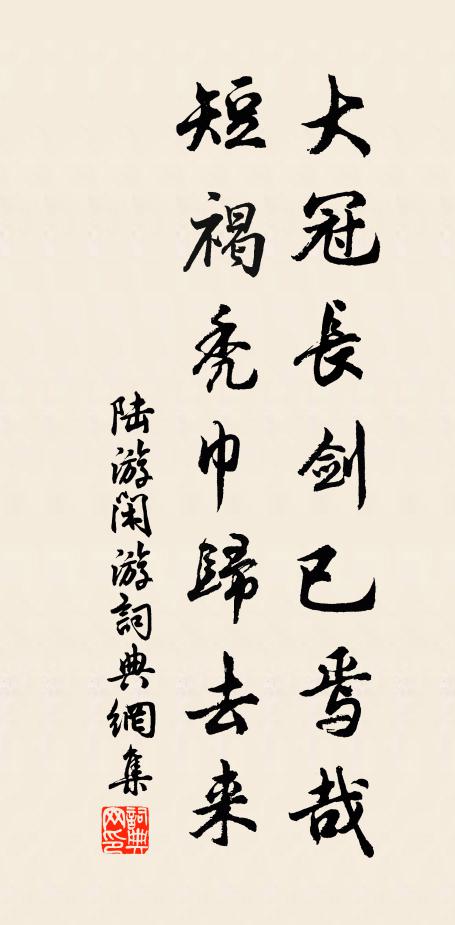 大冠長剑已焉哉
短褐秃巾歸去来
陆游闲游詞典網集
詞典网印